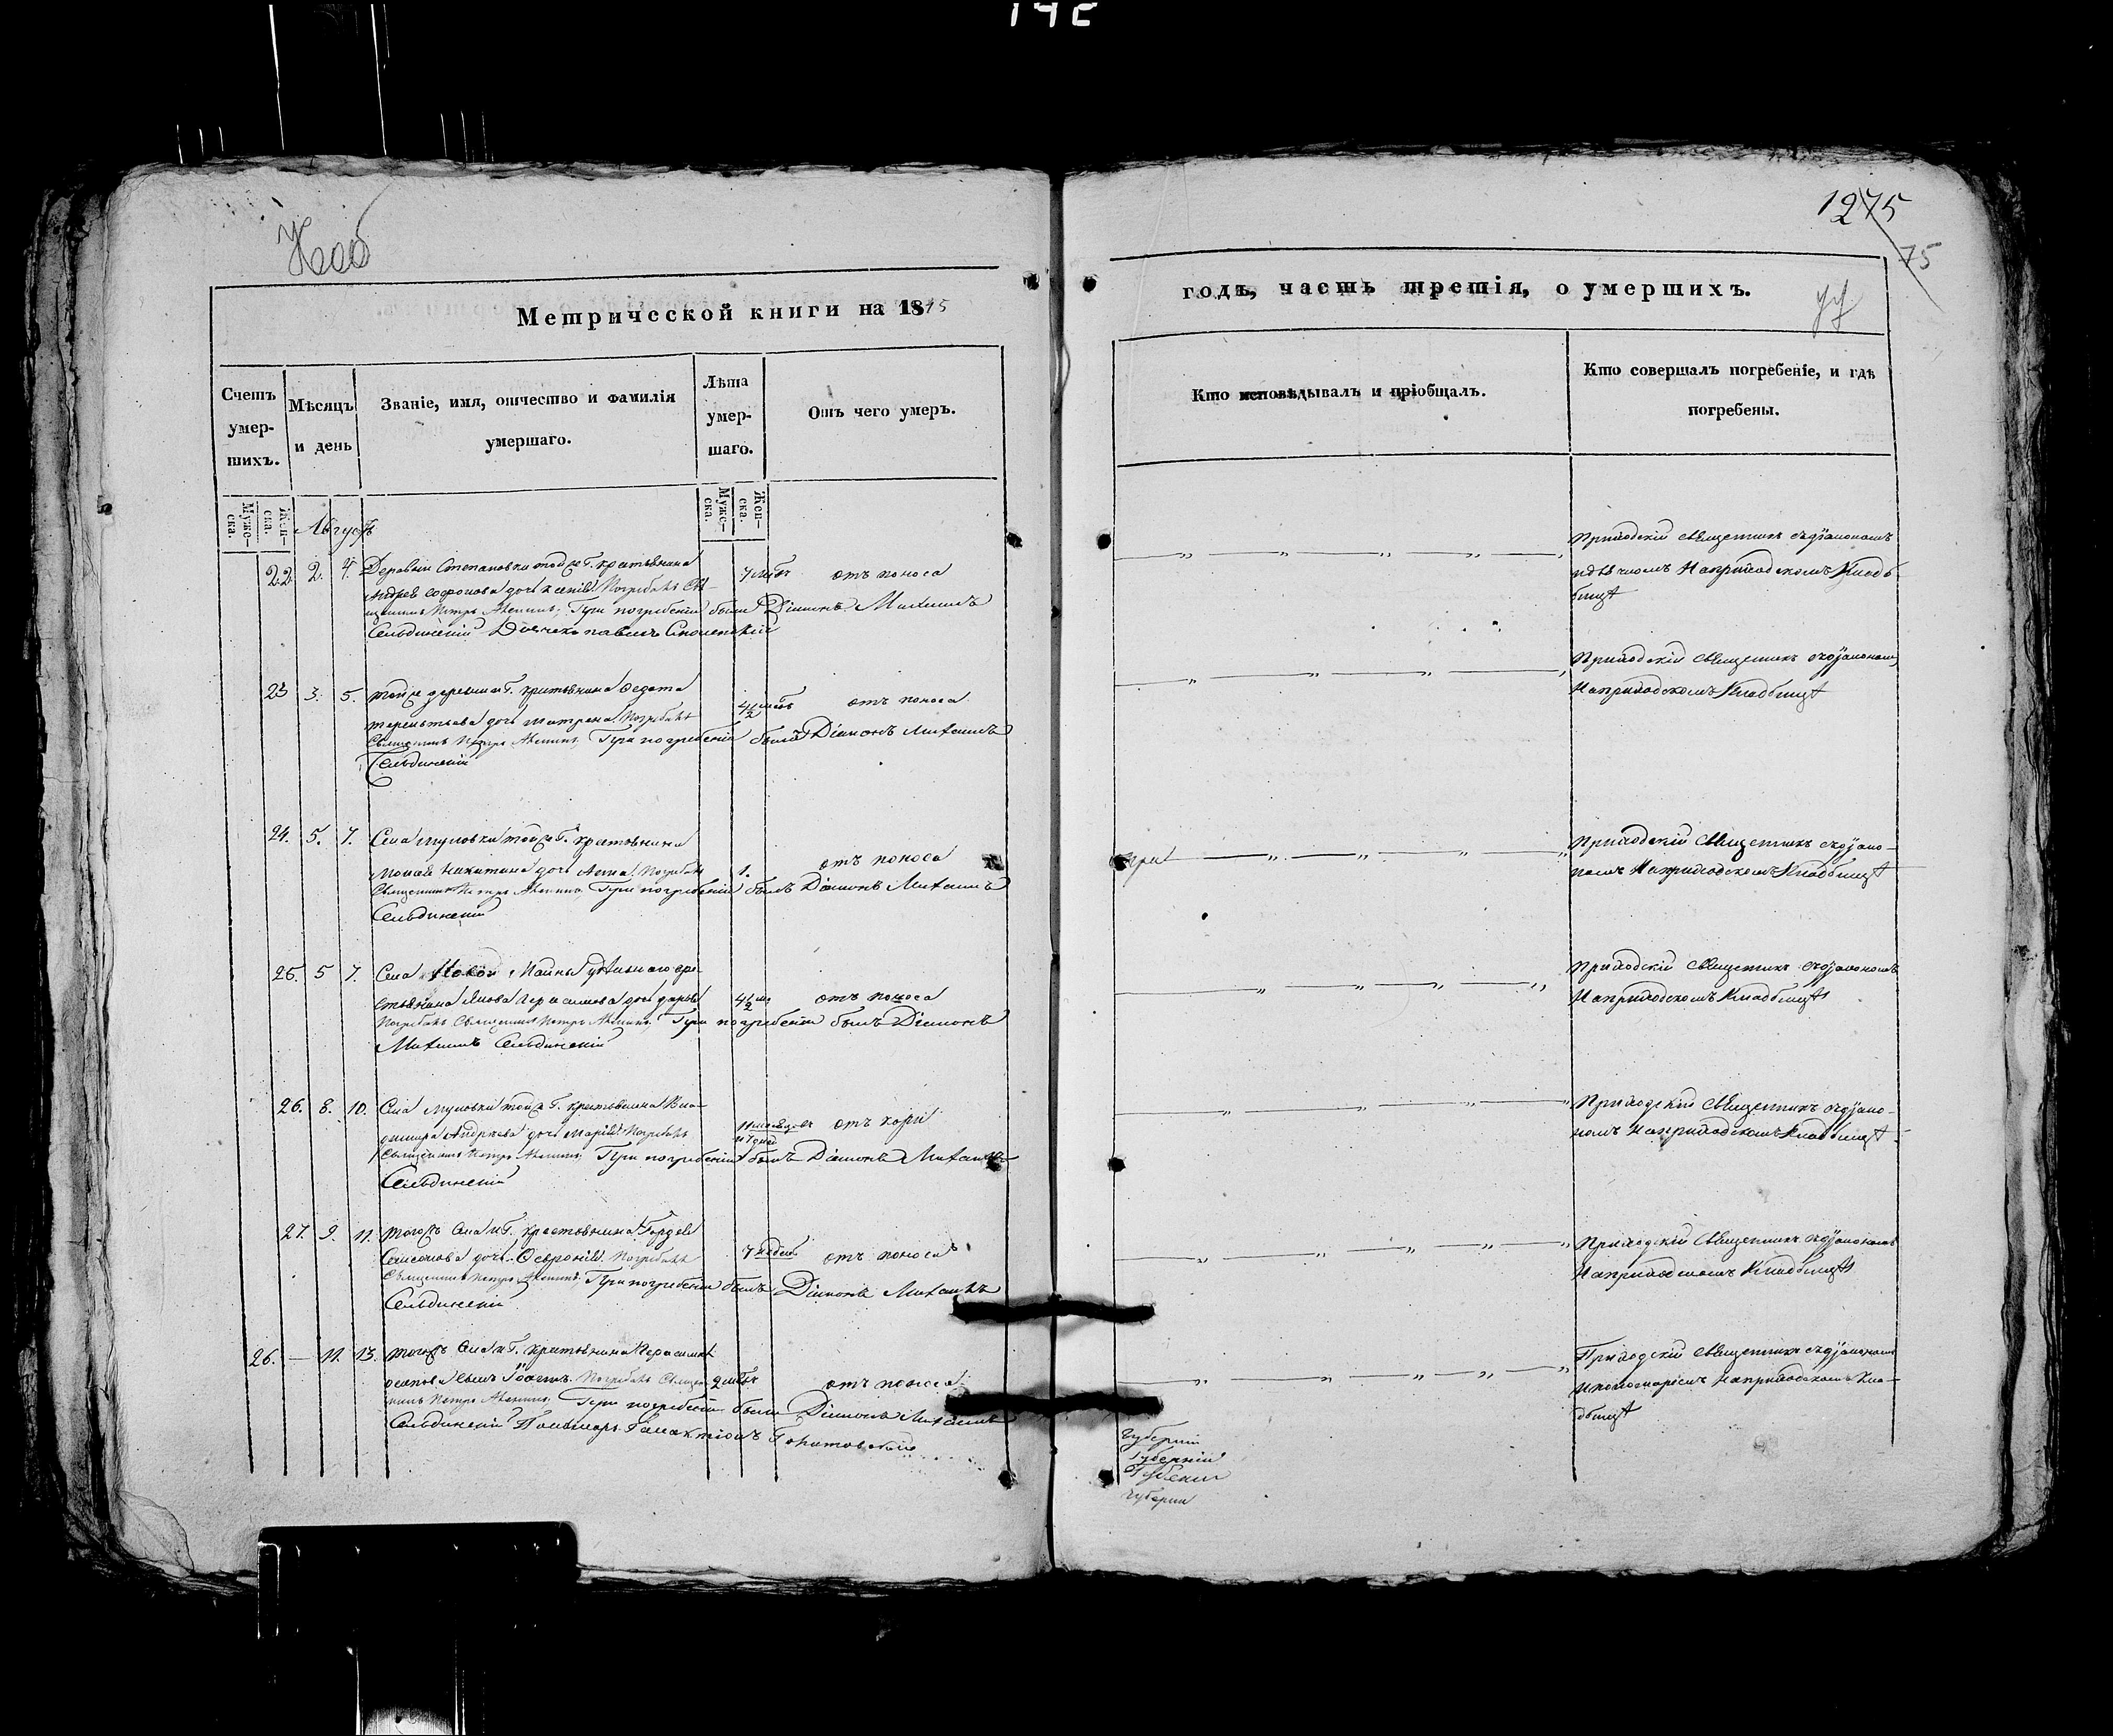 142
1275
75
Метрической книги на 1845
годъ, часть третія, о умершихъ.
Счетъ умер-шихъ.
Мѣсяцъ и день
Званіе, имя, отчество и фамилія умершаго.
Лѣта умер-шаго.
Отъ чего умеръ.
Кто исповѣдывалъ и пріобщалъ.
Кто совершалъ погребеніе, и гдѣ погребены.
Муже-ска.
Жен-ска.
Муже-ска.
Жен-ска.
Августъ
22. 2. 4. Деревни Степановки той же Г. крестьянина
Андрея Софронова дочь Ксенія Погребалъ Свя-
щенникъ Петръ При погребеніи были Діаконъ Михаилъ
Сельдинскій Дьячекъ Павелъ Смоленскій
7 лѣтъ
отъ поноса
Приходскій священникъ съ діакономъ
и дьячкомъ на приходскомъ кладб-
бищѣ
23 3. 5. той же деревни Г. крестьянина Федота
Терентьева дочь Матрена Погребалъ
Священникъ Петръ При погребеніи былъ Діаконъ Михаилъ
Сельдинскій
4½
отъ поноса
Приходскій священникъ съ діакономъ
на приходскомъ кладбищѣ
24. 5. 7. Села той же Г. крестьянина
Никитина дочь Анна Погребалъ
Священникъ Петръ При погребеніи былъ Діаконъ Михаилъ
Сельдинскій
1.
отъ поноса
при
Приходскій священникъ съ діако-
номъ на приходскомъ кладбищѣ
25. 5 7. Села Новой Майны удѣльнаго кре-
стьянина Якова Герасимова дочь Дарья
Погребалъ Священникъ Петръ При погребеніи былъ Діаконъ
Михаилъ Сельдинскій
4½
отъ поноса
Приходскій священникъ съ діакономъ
на приходскомъ кладбищѣ
26. 8. 10. Села той же Г. крестьянина Вла-
димира Андреева дочь Марія Погребалъ
Священникъ Петръ При погребеніи былъ Діаконъ Михаилъ
Сельдинскій
11 мѣсяцовъ
и 7 дней
отъ кори
Приходскій священникъ съ діако-
номъ на приходскомъ кладбищѣ
27. 9. 11. того жъ села и Г. крестьянина Гордея
дочь Февронія Погребалъ
Священникъ Петръ При погребеніи былъ Діаконъ Михаилъ
Сельдинскій
7 недель
отъ поноса
Приходскій священникъ съ діакономъ
на приходскомъ кладбищѣ
26. — 11. 13. того жъ села и Г. крестьянина Герасима
Осипова сынъ Погребалъ Священ-
никъ Петръ При погребеніи были Діаконъ Михаилъ
Сельдинскій Пономарь Галактіонъ
2 лѣтъ
отъ поноса
Приходскій священникъ съ діакономъ
и пономаремъ на приходскомъ кла-
дбищѣ
Губерніи
Губерніи
Губерніи
Губерніи